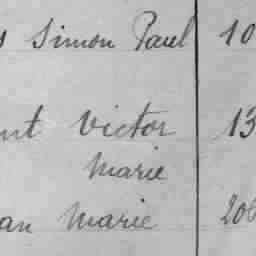 s Simon Paul 10
nt Victor 13
Marie
an Marie 206